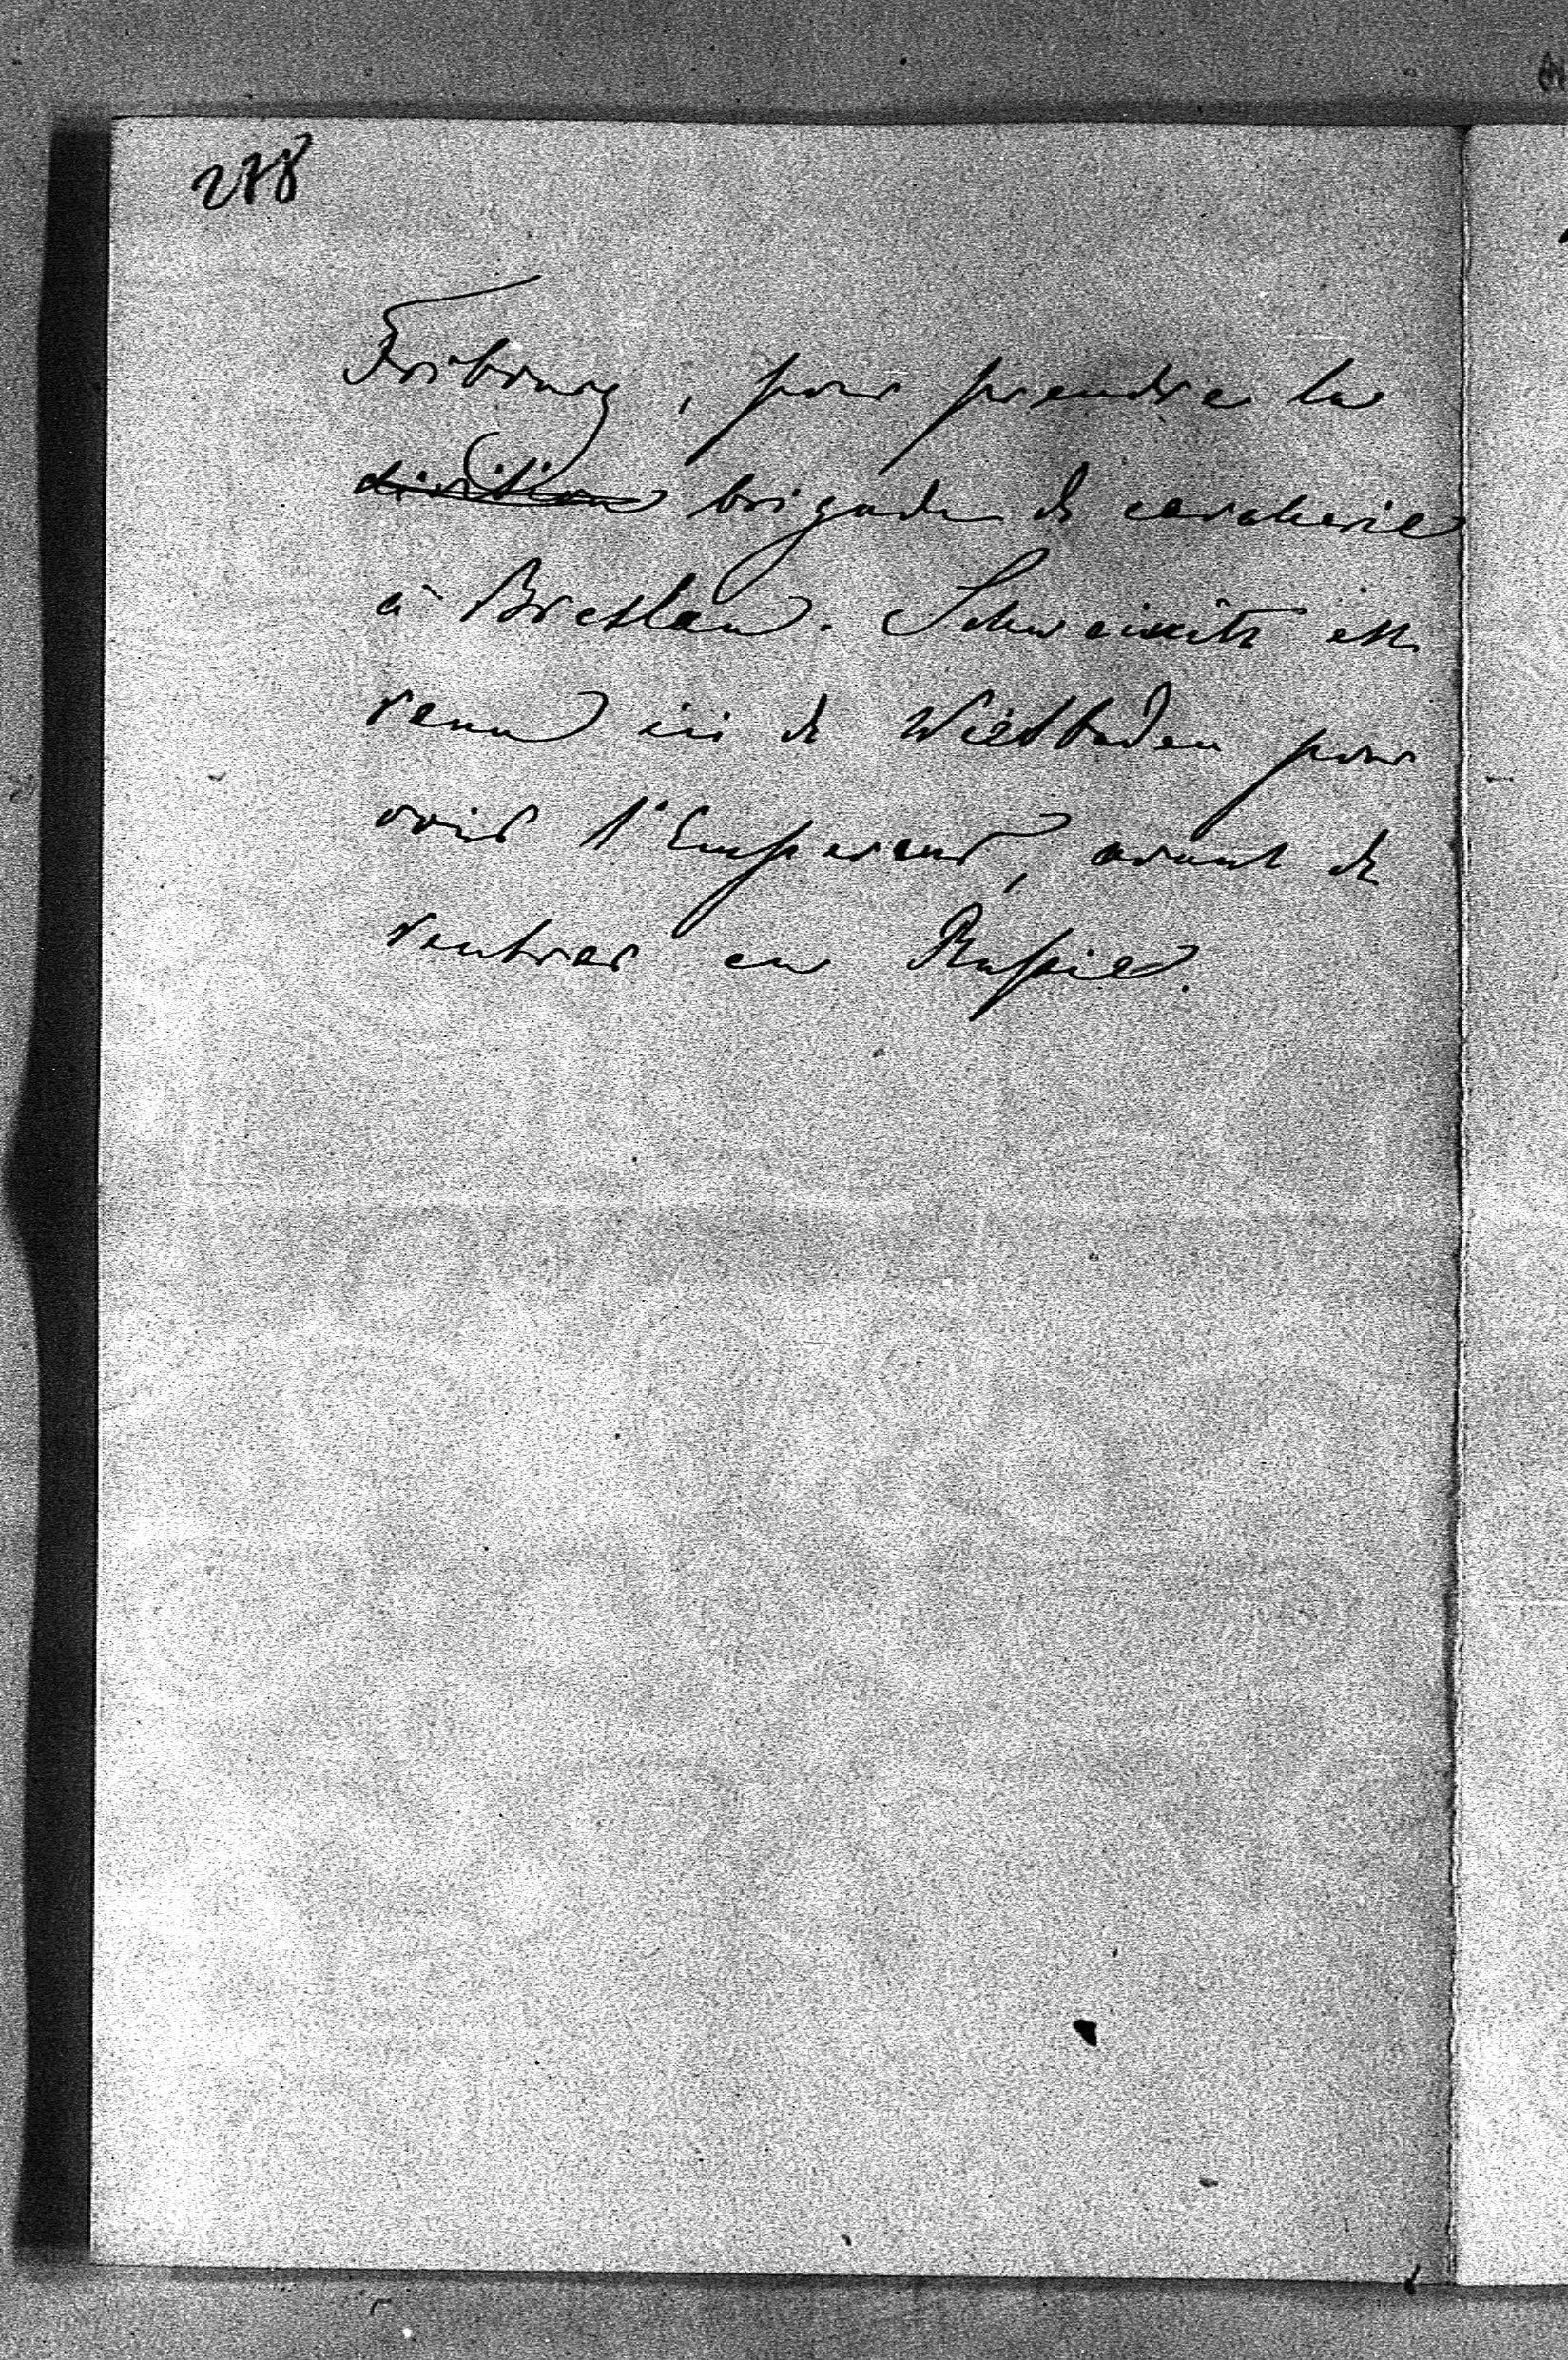 278
Fribourg, pour prendre la
division brigade de cavalerie
à Breslau. Schweinitz est
venu ici de Wiesbaden pour
voir l'Empereur, avant de
rentrer en Russie.